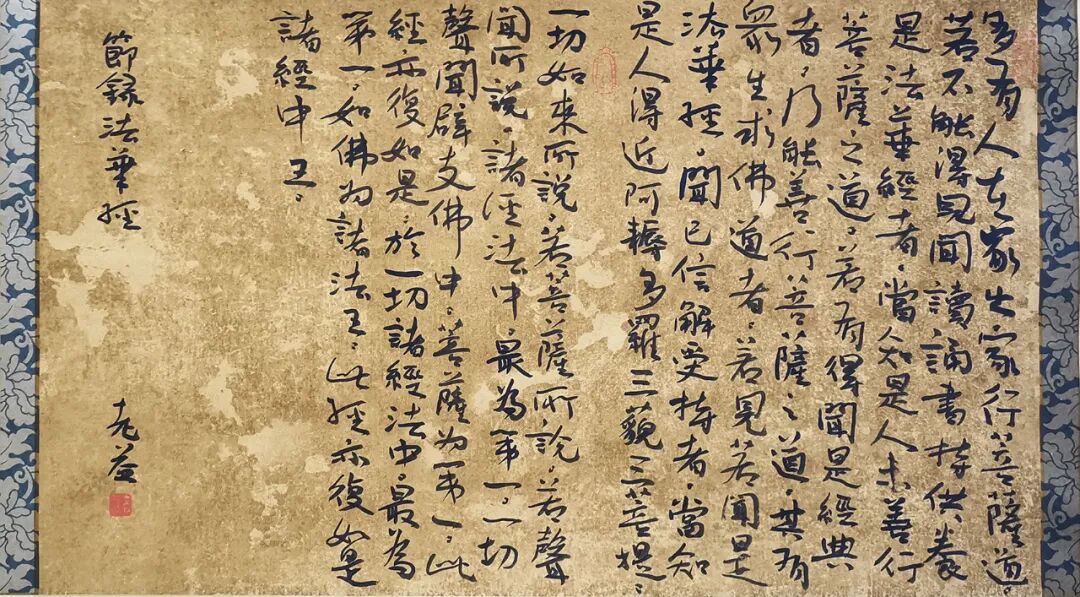 多有人在家出家行菩薩道。
若不能得見聞讀誦書持供養
是法華經者。當知是人未善行
菩薩之道。若有得聞是經典
者。乃能善行菩薩之道。其有
眾生求佛道者。若見若聞是
法華經。聞已信解受持者。當知
是人得近阿耨多羅三藐三菩提。
一切如來所說。若菩薩所說。若聲
聞所說。諸經法中。最為第一。一切
聲聞辟支佛中。菩薩為第一。此
經亦復如是。於一切諸經法中。最為
第一。如佛為諸法王。此經亦復如是
諸經中王。
節錄法華經